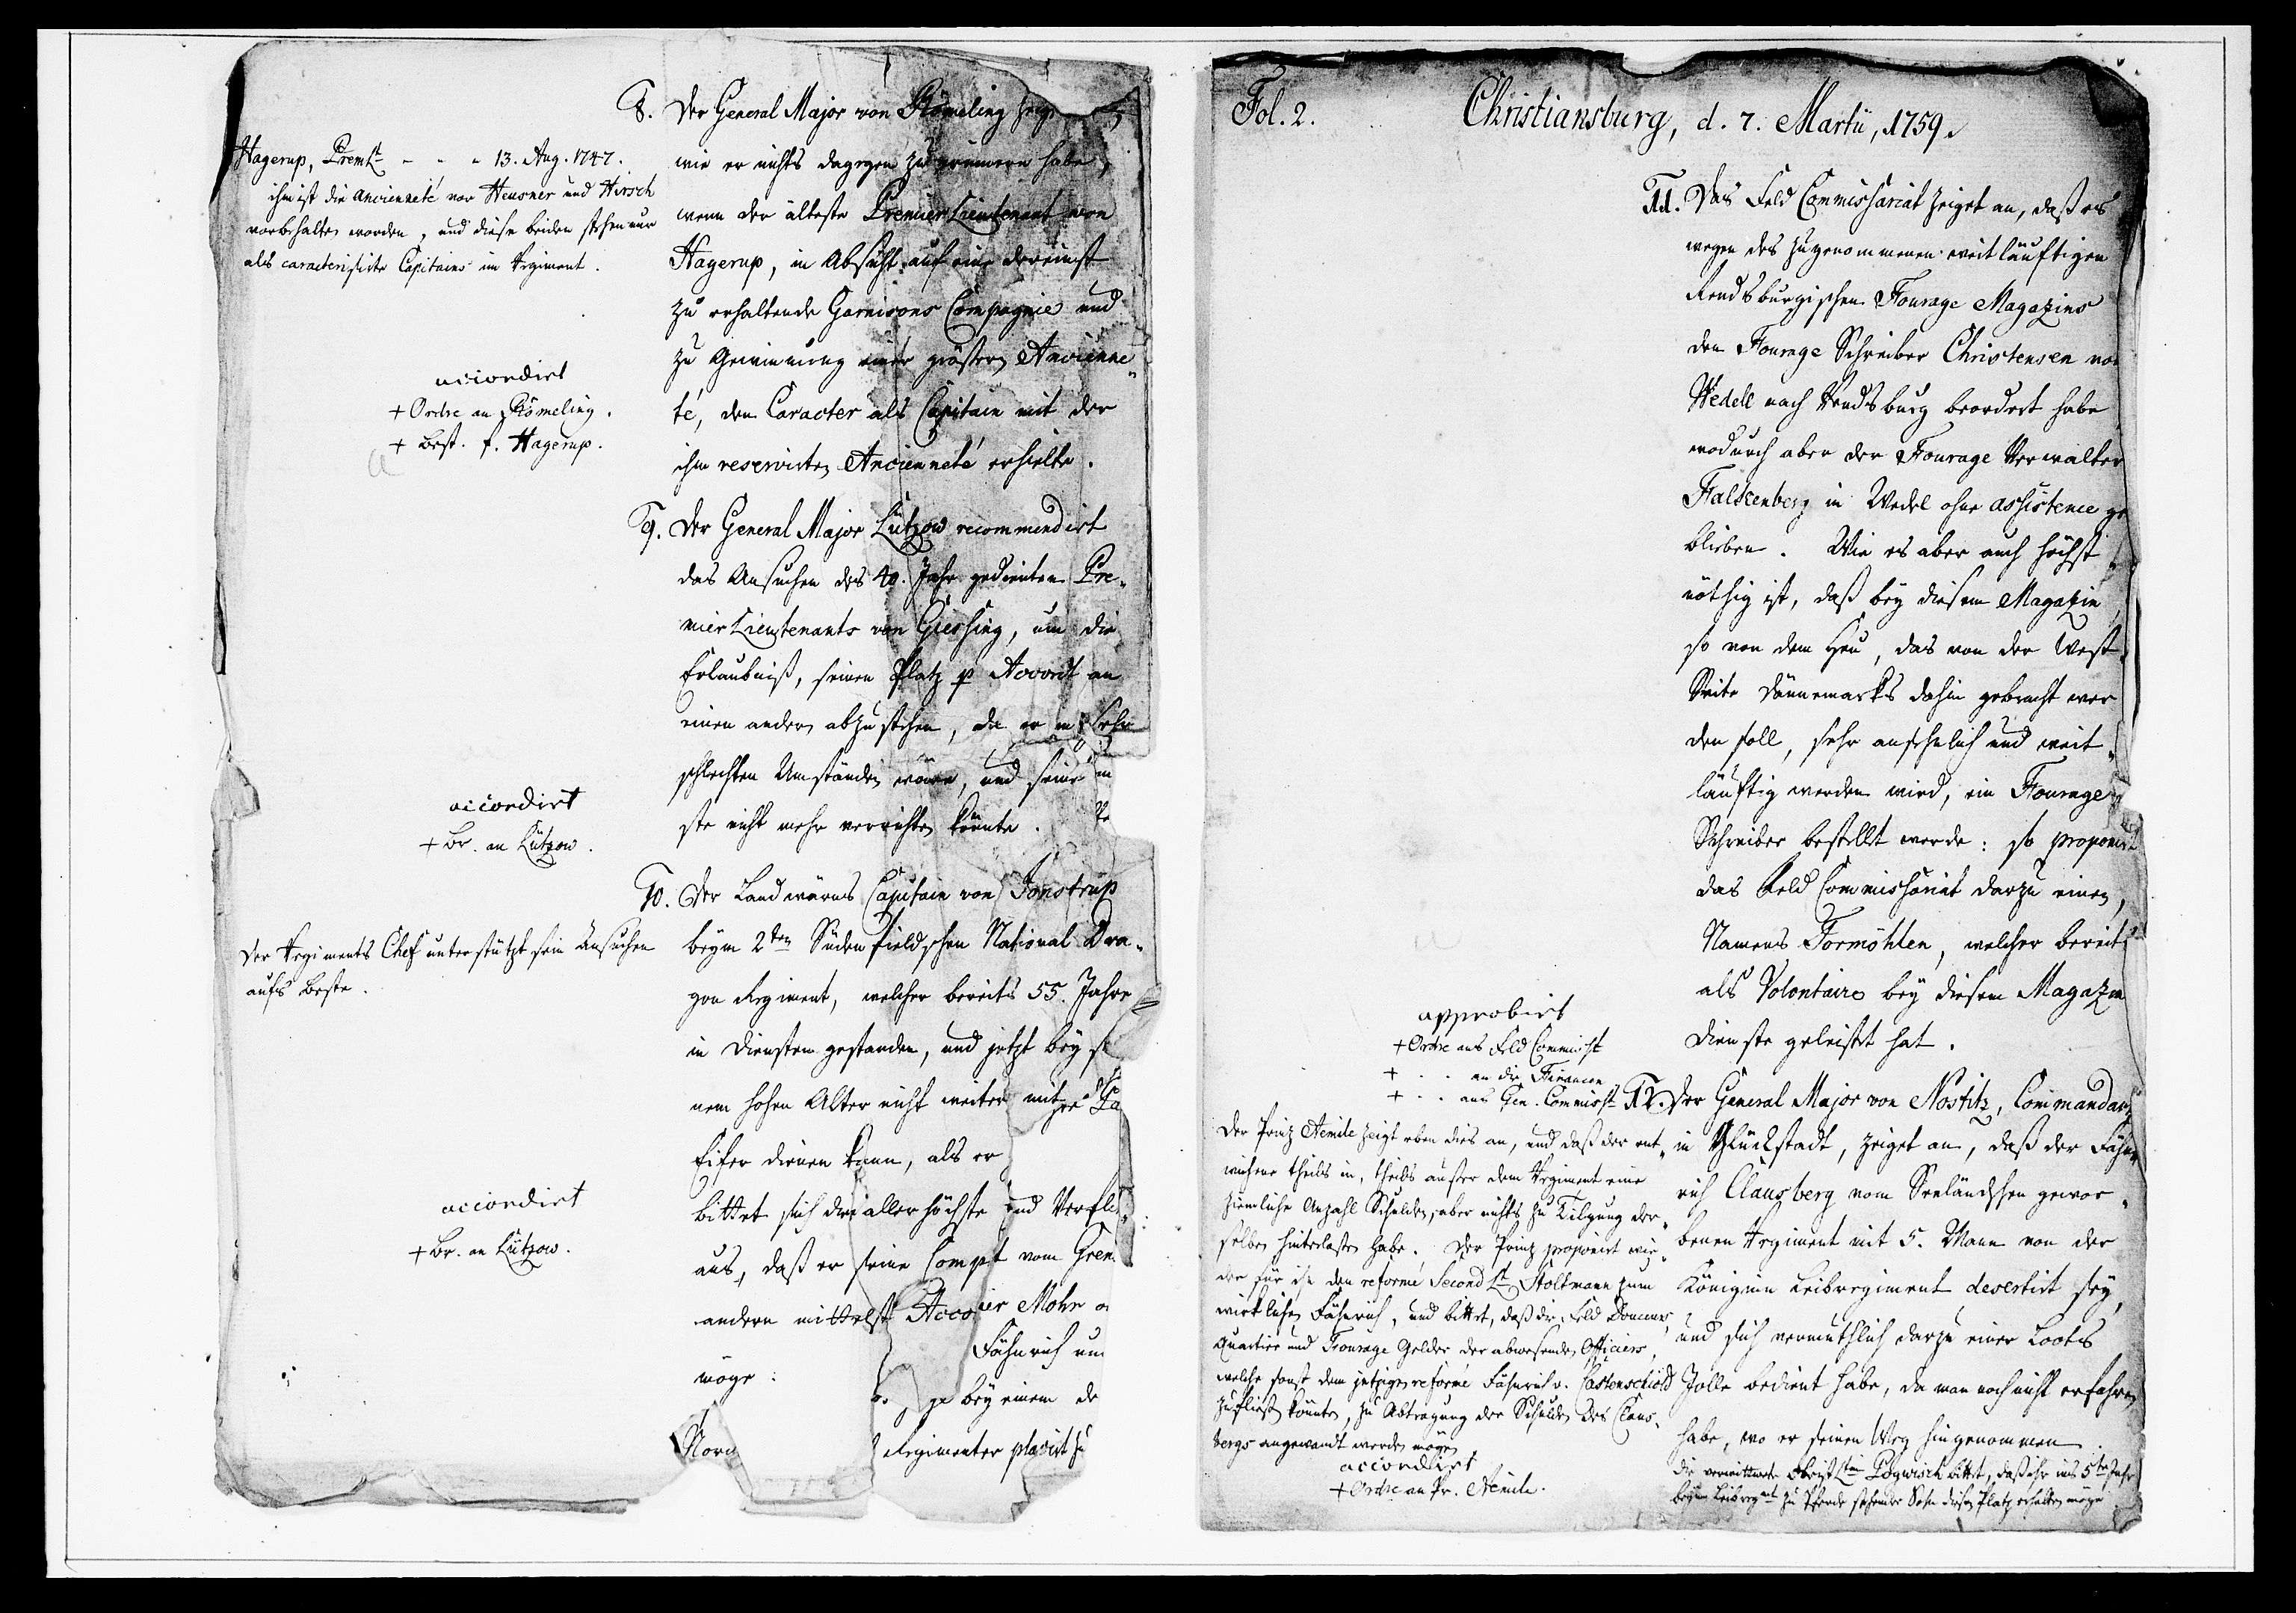 8. Der General Major von Römeling zeig
wie er nichts dagegen zu erinnern habe,
wenn der älteste Premier Lieutenant von
Hagerup, in Absicht auf eine dereinst
zu erhaltende Garnisons Compagnie und
zu Gewinnung einer größern Ancienne„
té, den Caracter als Capitain mit der
ihm reservirten Ancienneté erhielte.
Hagerup, PremLt - - - 13. Aug. 1747.
ihm ist die Ancienneté vor Heusner und Hirsch
vorbehalten worden, und diese beiden stehen nur
als caracterisirte Capitains im Regiment.
accordirt
+ Ordre an Römeling.
+ Best. f. Hagerup.
9. Der General Major Lützow recommendirt
das Ansuchen des 40. Jahr gedienten Pre„
mier Lieutenants von Giessing, um die
Erlaubniß, seinen Platz p Accord an
einen andern abzustehen, da er in sehr
schlechten Umständen wäre, und seine
ste nicht mehr verrichten könnte.
accordirt
+ Br. an Lützow.
10. Der Landwärns Capitain von Jonstrup
beym 2ten Südenfieldschen National Dra„
gon Regiment, welcher bereits 55. Jahre
in Diensten gestanden, und jetzt bey se
nem hohen Alter nicht weiter mit
Eifer dienen kann, als er
bittet sich die allerhöchste und
aus, daß er seine Comp vom Gren
andern mittelst Acco Mohr
Fähnrich
möge:
bey einem de
Norw Regimenter placirt
Der Regiments Chef unterstützt sein Ansuchen
aufs beste.
accordirt
+ Br. an Lützow.
Fol. 2. Christiansburg, d. 7. Martii, 1759.
11. Das Feld Commissariat zeiget an, daß es
wegen des zugenommenen weitläuftigen
Rendsburgischen Fourage Magazins
den Fourage Schreiber Christensen von
Wedell nach Rendsburg beordert habe,
wodurch aber der Fourage Verwalter
Falkenberg in Wedel ohne assistence ge
blieben. Wie es aber auch höchst
nöthig ist, daß bey diesem Magazin,
so von dem Heu, das von der West„
Seite Dännemarks dahin gebracht wer
den soll, sehr ansehnlich und weit„
läuftig werden wird, ein Fourage
Schreiber bestellt werde: so proponirt
das Feld Commissariat darzu einen,
Namens Tormöhlen, welcher bereits
als Volontaire bey diesem Magazin
Dienste geleistet hat.
approbirt
+ Ordre ans Feld Commisst
+ - - an die Financen
+ - - ans Gen. Commisst
12. Der General Major von Nostitz, Commandant
in Glückstadt, zeiget an, daß der Fähn„
rich Clausberg vom Seeländschen gewor„
benen Regiment mit 5. Mann von der
Königinn Leibregiment desertirt sey,
und sich vermuthlich darzu einer Bootes
Jolle bedient habe, da man noch nicht erfahren
habe, wo er seinen Weg hingenommen.
Die verwittwete Obrist Ltin Pogwisch bittet, daß ihr ins 5te Jahr
beym Leibregmt zu Pferde stehender Sohn diesen Platz erhalten möge
Der Prinz Aemile zeigt eben dies an, und daß der ent„
wichene theils in, theils außer dem Regiment eine
ziemliche Anzahl Schulden, aber nichts zu Tilgung der„
selben hinterlassen habe. Der Prinz proponirt wie„
der für ihn den reformé Second Lt Stoltmann zum
wirklichen Fähnrich, und bittet, daß die Feld Douceur,
Quartier und Fourage Gelder der abwesenden Officiers,
welche sonst dem jetzigen reformé Fähnrich v. Castenschiold
zufließen könnten, zu Abtragung der Schulden des Claus„
bergs angewandt werden mögen
accordirt
+ Ordre an Pr. Aemile.